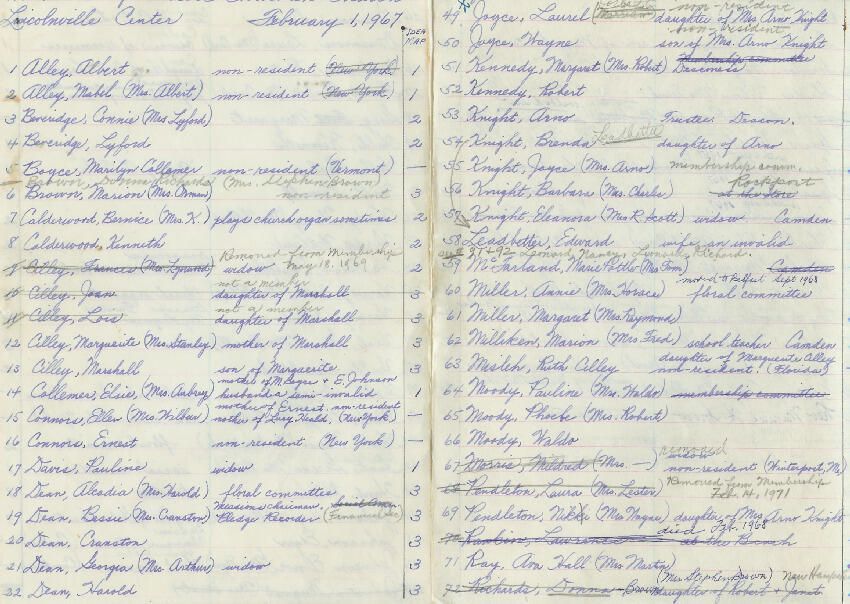 Lincolnville Center February 1, 1967
IDEA MAP
1 Alley, Albert non-resident (New York) 1
2 Alley, Mabel (Mrs. Albert) non-resident (New York) 1
3 Beveridge, Connie (Mrs. Lyford) 2
4 Beveridge, Lyford 2
5 Boyce, Marilyn Collamer non-resident (Vermont) —
(Mrs. Stephen Brown)
non-resident
6 Brown, Marion (Mrs. Orman) 3
7 Calderwood, Bernice (Mrs. K.) plays church organ sometimes 2
8 Calderwood, Kenneth 2
Removed from Membership
May 18, 1969
9 Cilley, Frances (Mrs. Lynwood) widow 2
not a member
10 Cilley, Joan daughter of Marshall 3
not a member
11 Cilley, Lois daughter of Marshall 3
12 Cilley, Marguerite (Mrs. Stanley) mother of Marshall 3
13 Cilley, Marshall son of Marguerite 3
mother of M. Pease + E. Johnson
14 Collemer, Elsie, (Mrs. Aubrey) husband a semi-invalid 1
mother of Ernest, non-resident
15 Connors, Ellen (Mrs. Wilbur) mother of Lucy Heald, (New York) —
16 Connors, Ernest non-resident (New York) —
17 Davis, Pauline widow 1
18 Dean, Alcadia (Mrs. Harold) floral committee 3
Missions chairman,
19 Dean, Bessie (Mrs. Cranston) Pledge Recorder (Financial Sec) 3
20 Dean, Cranston 3
21 Dean, Georgia (Mrs. Arthur) widow 3
22 Dean, Harold 3
non-resident
49 Joyce, Laurel daughter of Mrs. Arno Knight
non-resident
50 Joyce, Wayne son of Mrs. Arno Knight
membership committee
51 Kennedy, Margaret (Mrs. Robert) Deaconess
52 Kennedy, Robert
53 Knight, Arno Trustee: Deacon.
Leadbetter
54 Knight, Brenda daughter of Arno
55 Knight, Joyce (Mrs. Arno) membership comm.
Rockport
56 Knight, Barbara (Mrs. Charles) at the Store
57 Knight, Eleanora (Mrs R. Scott) widow Camden
58 Leadbetter, Edward wife an invalid
91-92 Leonard, Nancy, Richard.
59 McFarland, Marie Potts (Mrs. Tom) Camden
moved to Belfast Sept 1968
60 Miller, Annie (Mrs. Horace) floral committee
61 Miller, Margaret (Mrs. Raymond)
62 Milliken, Marion (Mrs. Fred) school teacher Camden
daughter of Marguerite Cilley
63 Misleh, Ruth Cilley non-resident, (Florida)
64 Moody, Pauline (Mrs. Waldo) membership committee
65 Moody, Phoebe (Mrs. Robert)
66 Moody, Waldo
removed
widow
67 Morris, Mildred (Mrs. —) non-resident (Winterport, Me)
Removed from Membership
68 Pendleton, Laura (Mrs. Lester) Feb. 14, 1971
69 Pendleton, Nikki (Mrs Wayne) daughter of Mrs. Arno Knight
died Feb. 1968
70 Rankin, Lawrence at the Beach
71 Ray, Ava Hall (Mrs Martin)
(Mrs. Stephen Brown)
72 Richards, Donna - Brown daughter of Robert + Janet